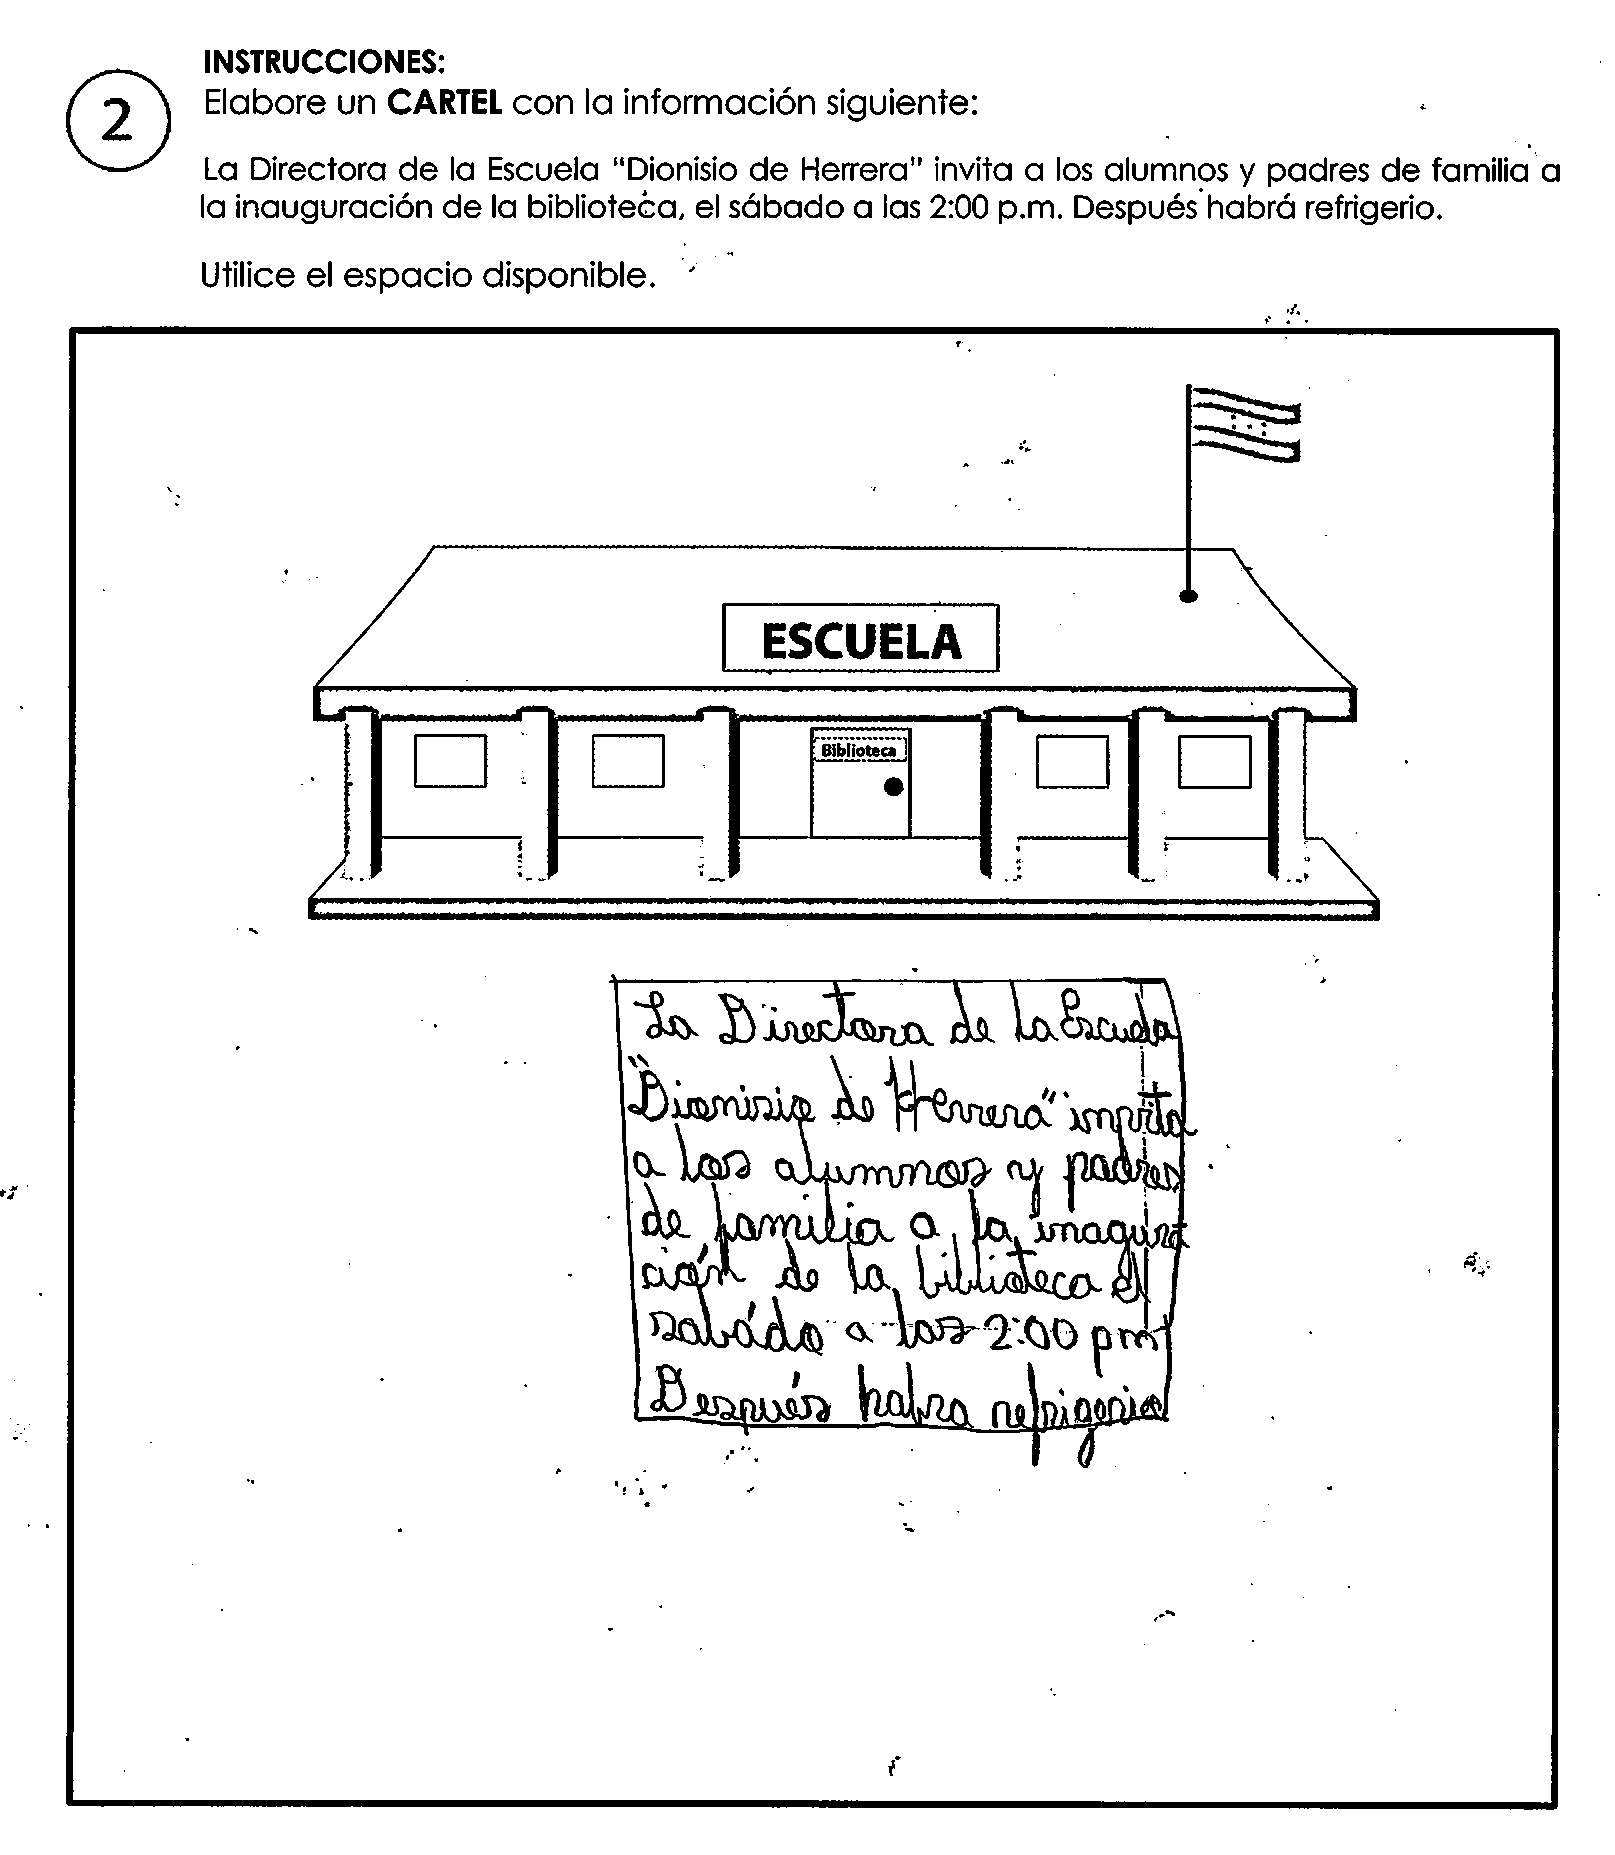 INSTRUCCIONES:
2
Elabore un CARTEL con la información siguiente:
La Directora de la Escuela "Dionisio de Herrera" invita a los alumnos y padres de familia a
la inauguración de la biblioteca, el sábado a las 2:00 p.m. Después habrá refrigerio.
Utilice el espacio disponible.
ESCUELA
Biblioteca
La Directora de la Escuela
"Dionisio de Herrera" imvita
a los alumnos y padres
de familia a la inagura
ción de la biblioteca el
sabádo a las 2:00 pm
Después habra refrigerio